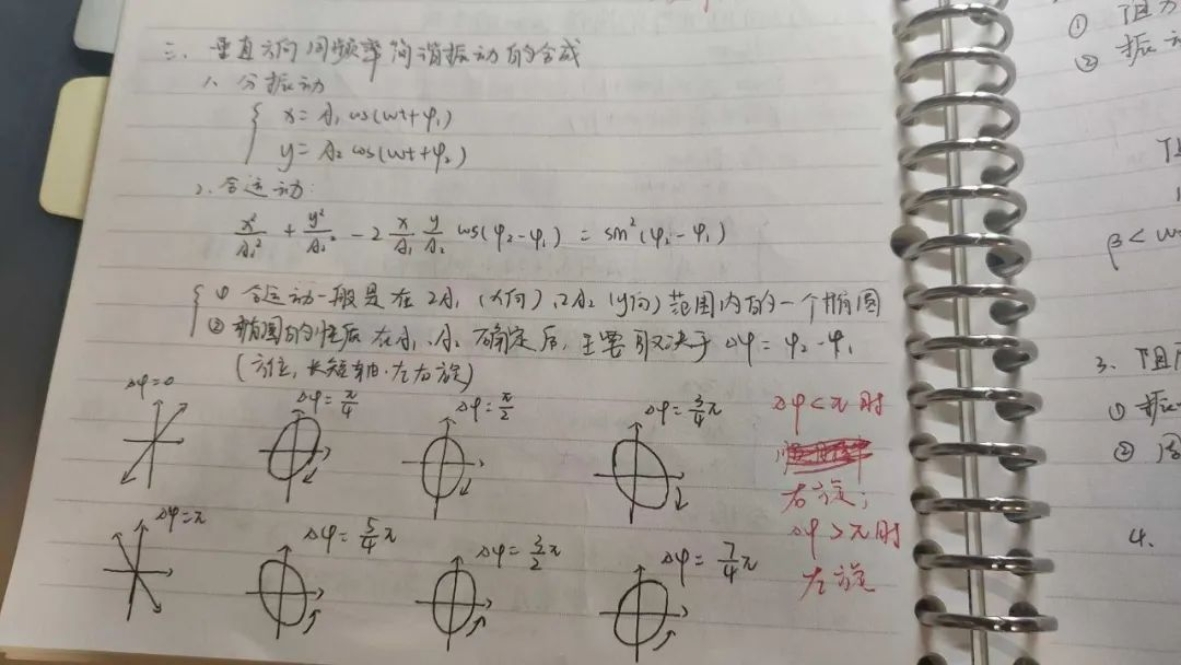 三、垂直方向同频率简谐振动的合成
1、分振动
{ x = A₁ cos(ωt+φ₁)
y = A₂ cos(ωt+φ₂)
2、合运动:
x²/A₁² + y²/A₂² - 2 x/A₁ y/A₂ cos(φ₂-φ₁) = sin²(φ₂-φ₁)
{ ① 合运动一般是在 2A₁ (x向)、2A₂ (y向) 范围内的一个椭圆
② 椭圆的性质在A₁、A₂确定后, 主要取决于 Δφ = φ₂-φ₁
(方位, 长短轴·左右旋)
Δφ=0
Δφ=π/4
Δφ=π/2
Δφ=3/4π
Δφ<π时
右旋;
Δφ>π时
左旋
Δφ=π
Δφ=5/4π
Δφ=3/2π
Δφ=7/4π
① 阻力
② 振动
β<ω
3、阻
① 振
②
4、